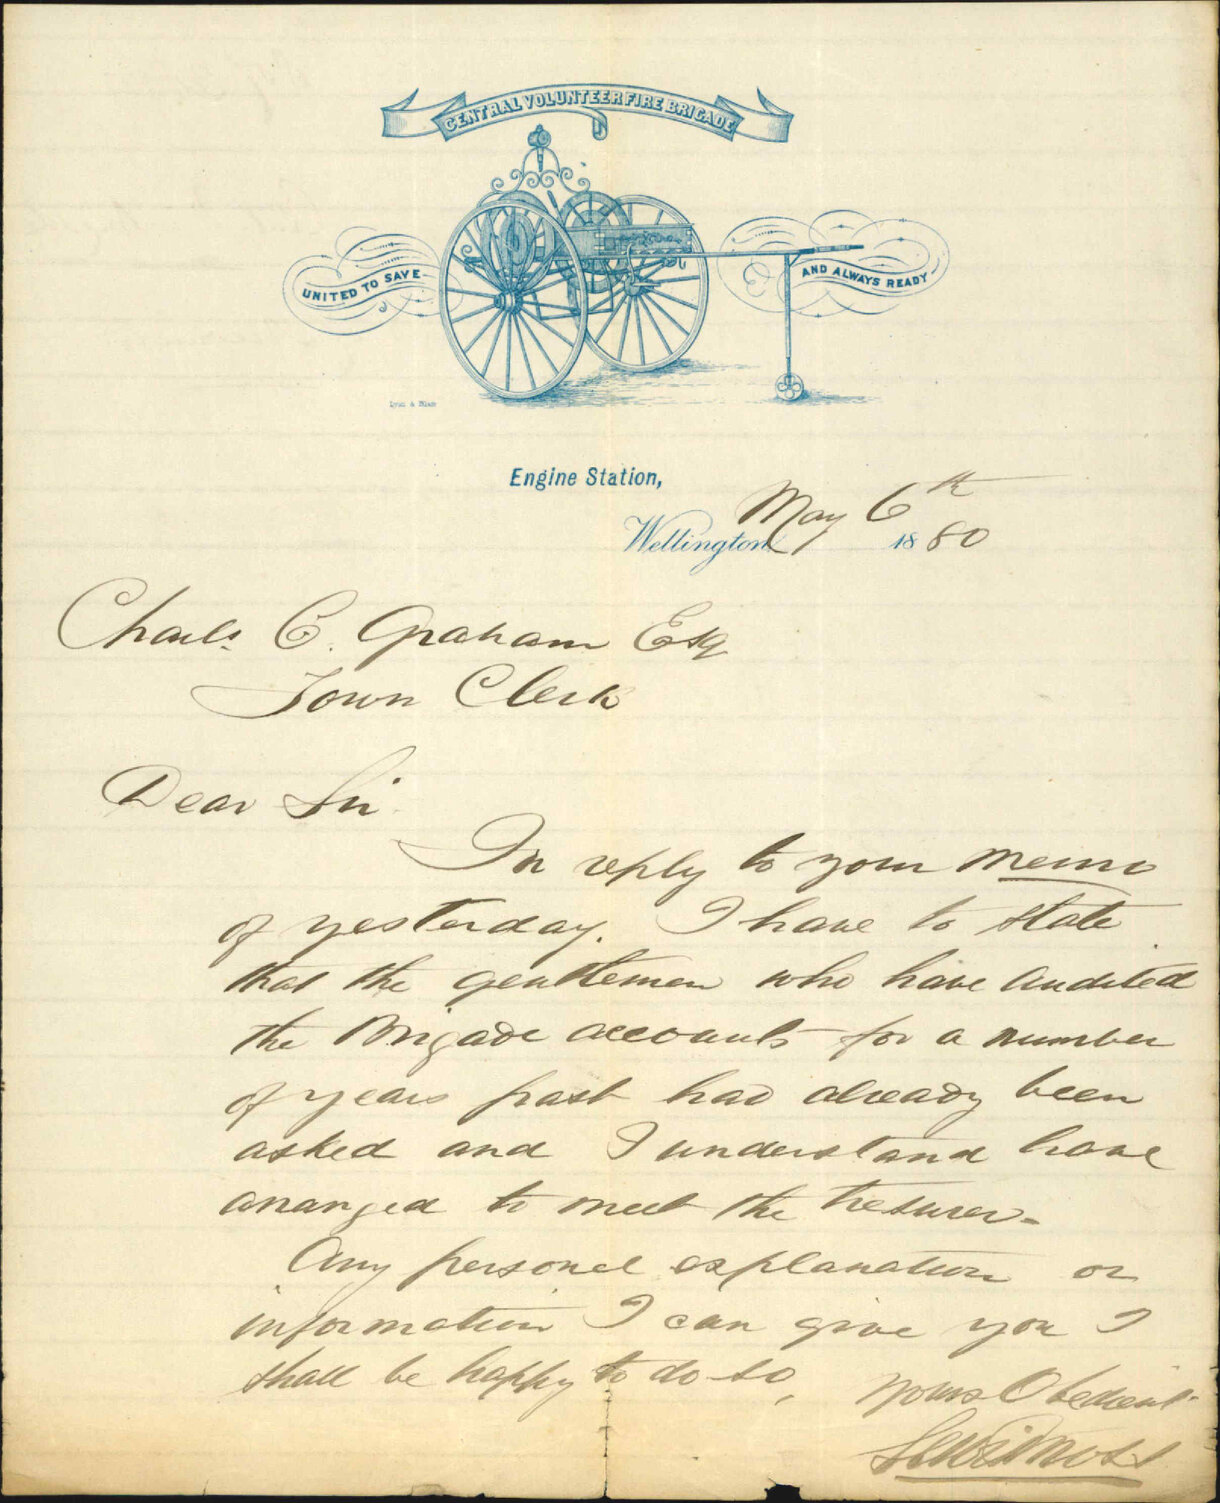 CENTRAL VOLUNTEER FIRE BRIGADE
UNITED TO SAVE
AND ALWAYS READY
Lyon & Blair
Engine Station,
Wellington May 6th 1880
Charls. C. Graham Esq
Town Clerk
Dear Sir
In reply to your memo
of yesterday. I have to state
that the gentlemen who have audited
the Brigade accounts for a number
of years past had already been
asked and I understand have
arranged to meet the tresurer-
Any personel explanation or
information I can give you I
shall be happy to do so,
Yours Obedient
Lewis Moss